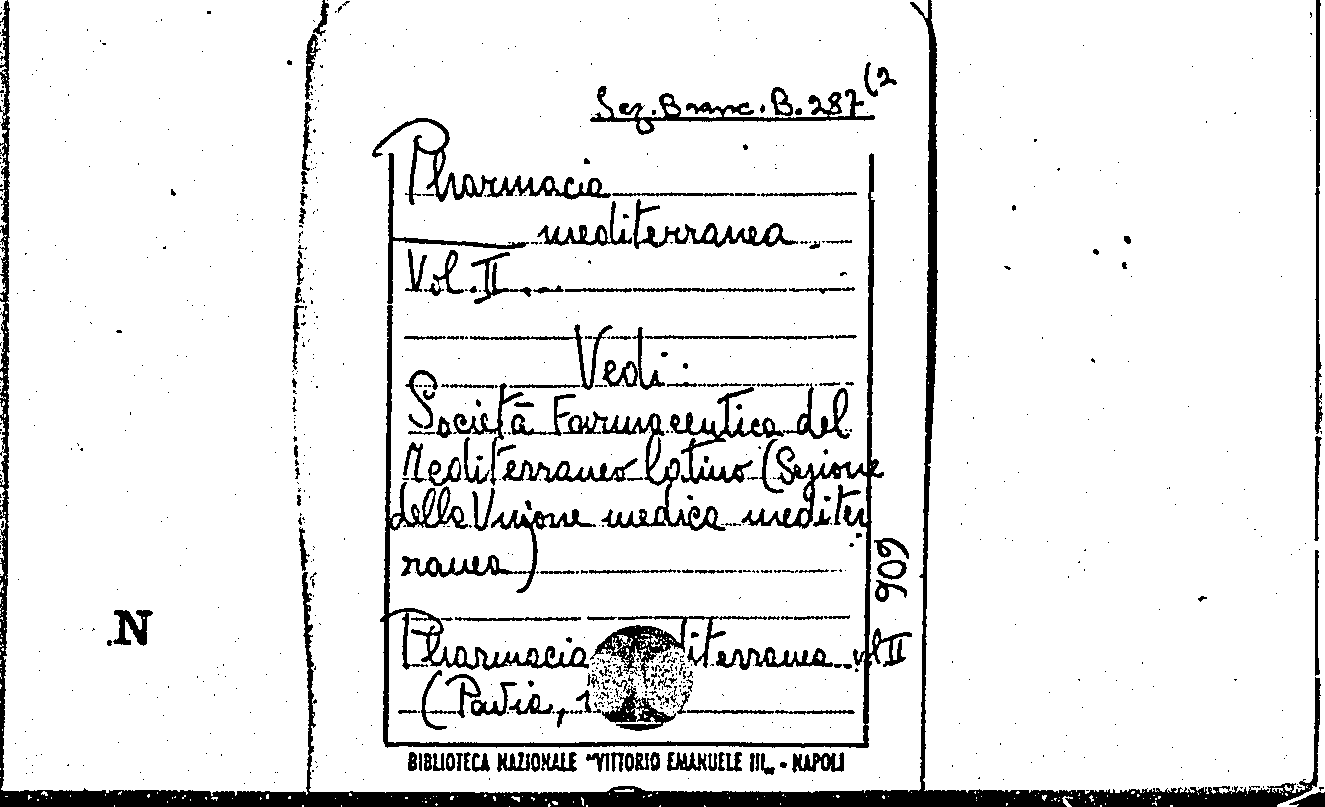 Sez. Branc. B. 287 (2
Pharmacia
mediterranea.
Vol. II...
Vedi:
Società Farmaceutica del
Mediterraneo latino (Sezione
della Unione medica mediter
ranea)
609
Pharmacia diterranea vol II
(Pavia, 1
N
BIBLIOTECA NAZIONALE "VITTORIO EMANUELE III„ - NAPOLI